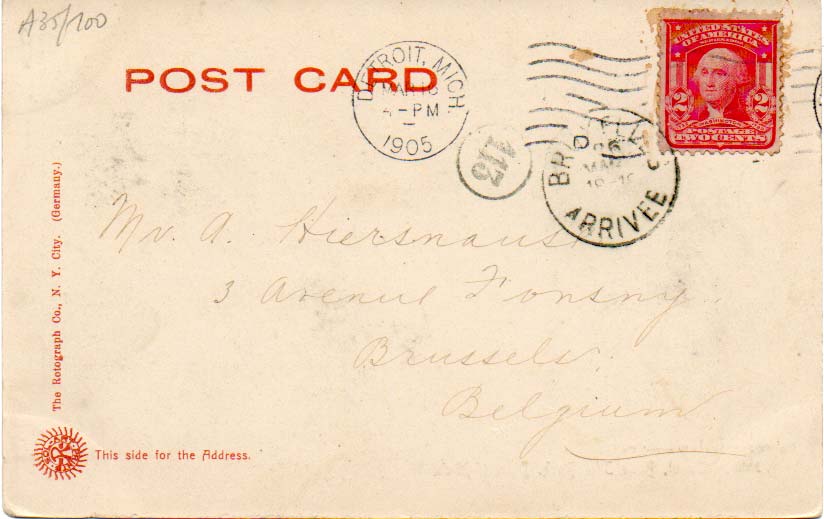 A35/100
POST CARD
DETROIT, MICH.
MAR 18
4-PM
1905
UNITED STATES
OF AMERICA
2 2
WASHINGTON
POSTAGE
TWO CENTS
113
ARRIVEE
Mr. A.
3 Avenue Fonsny.
Brussels.
Belgium.
The Rotograph Co., N. Y. City. (Germany.)
This side for the Address.